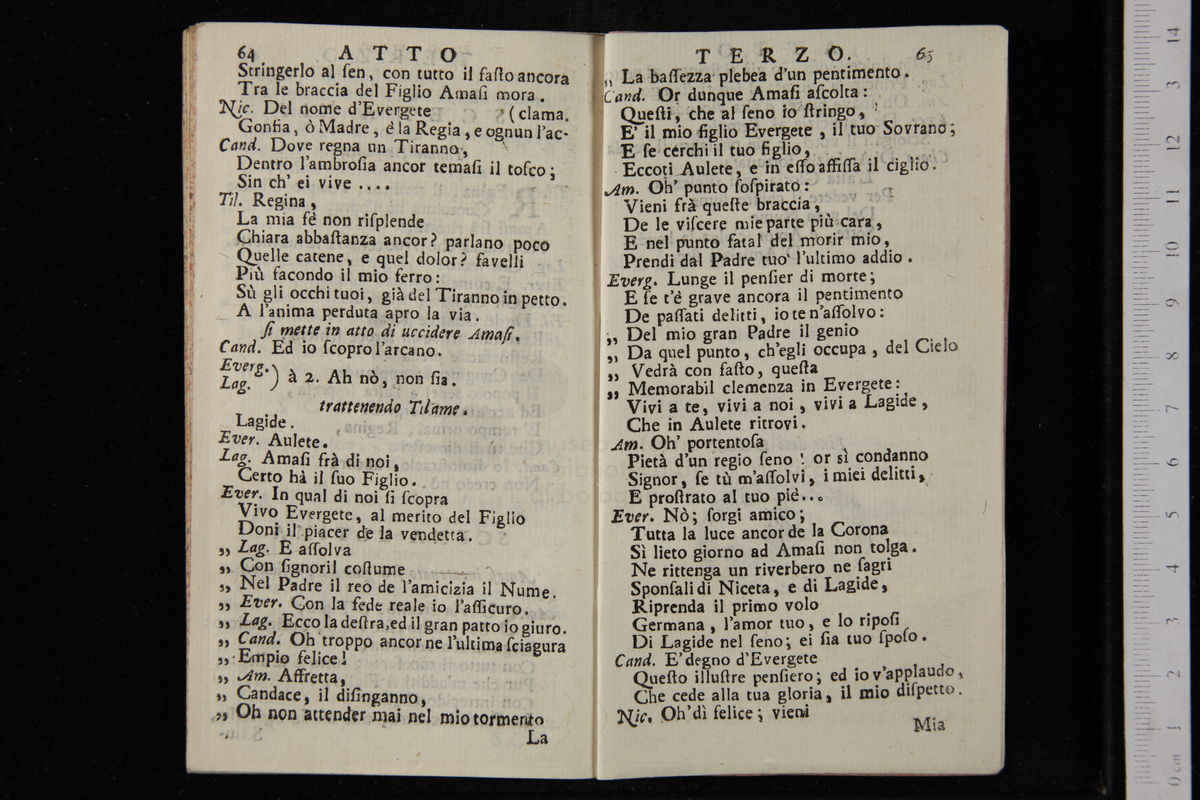 64 ATTO
Stringerlo al ſen, con tutto il faſto ancora
Tra le braccia del Figlio Amaſi mora.
Nic. Del nome d'Evergete (clama.
Gonfia, ò Madre, è la Regia, e ognun l'ac-
Cand. Dove regna un Tiranno,
Dentro l'ambroſia ancor temaſi il toſco;
Sin ch' ei vive ....
Til. Regina,
La mia fè non riſplende
Chiara abbaſtanza ancor? parlano poco
Quelle catene, e quel dolor? favelli
Più facondo il mio ferro:
Sù gli occhi tuoi, già del Tiranno in petto.
A l'anima perduta apro la via.
ſi mette in atto di uccidere Amaſi.
Cand. Ed io ſcopro l'arcano.
Everg.
Lag. ) à 2. Ah nò, non ſia.
trattenendo Tilame.
Lagide.
Ever. Aulete.
Lag. Amaſi frà di noi,
Certo hà il ſuo Figlio.
Ever. In qual di noi ſi ſcopra
Vivo Evergete, al merito del Figlio
Doni il piacer de la vendetta.
„ Lag. E aſſolva
„ Con ſignoril coſtume
„ Nel Padre il reo de l'amicizia il Nume.
„ Ever. Con la fede reale io l'aſſicuro.
„ Lag. Ecco la deſtra, ed il gran patto io giuro.
„ Cand. Oh troppo ancor ne l'ultima ſciagura
„ Empio felice!
„ Am. Affretta,
„ Candace, il diſinganno,
„ Oh non attender mai nel mio tormento
La
TERZO. 65
„ La baſſezza plebea d'un pentimento.
Cand. Or dunque Amaſi aſcolta:
Queſti, che al ſeno io ſtringo,
E' il mio figlio Evergete, il tuo Sovrano;
E ſe cerchi il tuo figlio,
Eccoti Aulete, e in eſſo affiſſa il ciglio.
Am. Oh' punto ſoſpirato:
Vieni frà queſte braccia,
De le viſcere mie parte più cara,
E nel punto fatal del morir mio,
Prendi dal Padre tuo l'ultimo addio.
Everg. Lunge il penſier di morte;
E ſe t'è grave ancora il pentimento
De paſſati delitti, io ten'aſſolvo:
„ Del mio gran Padre il genio
„ Da quel punto, ch'egli occupa, del Cielo
„ Vedrà con faſto, queſta
„ Memorabil clemenza in Evergete:
Vivi a te, vivi a noi, vivi a Lagide,
Che in Aulete ritrovi.
Am. Oh' portentoſa
Pietà d'un regio ſeno! or sì condanno
Signor, ſe tù m'aſſolvi, i miei delitti,
E proſtrato al tuo piè...
Ever. Nò; ſorgi amico;
Tutta la luce ancor de la Corona
Sì lieto giorno ad Amaſi non tolga.
Ne rittenga un riverbero ne ſagri
Sponſali di Niceta, e di Lagide,
Riprenda il primo volo
Germana, l'amor tuo, e lo ripoſi
Di Lagide nel ſeno; ei ſia tuo ſpoſo.
Cand. E' degno d'Evergete
Queſto illuſtre penſiero; ed io v'applaudo,
Che cede alla tua gloria, il mio diſpetto.
Nic. Oh' dì felice; vieni
Mia
14
13
12
11
10
9
8
7
6
5
4
3
2
1
0 cm